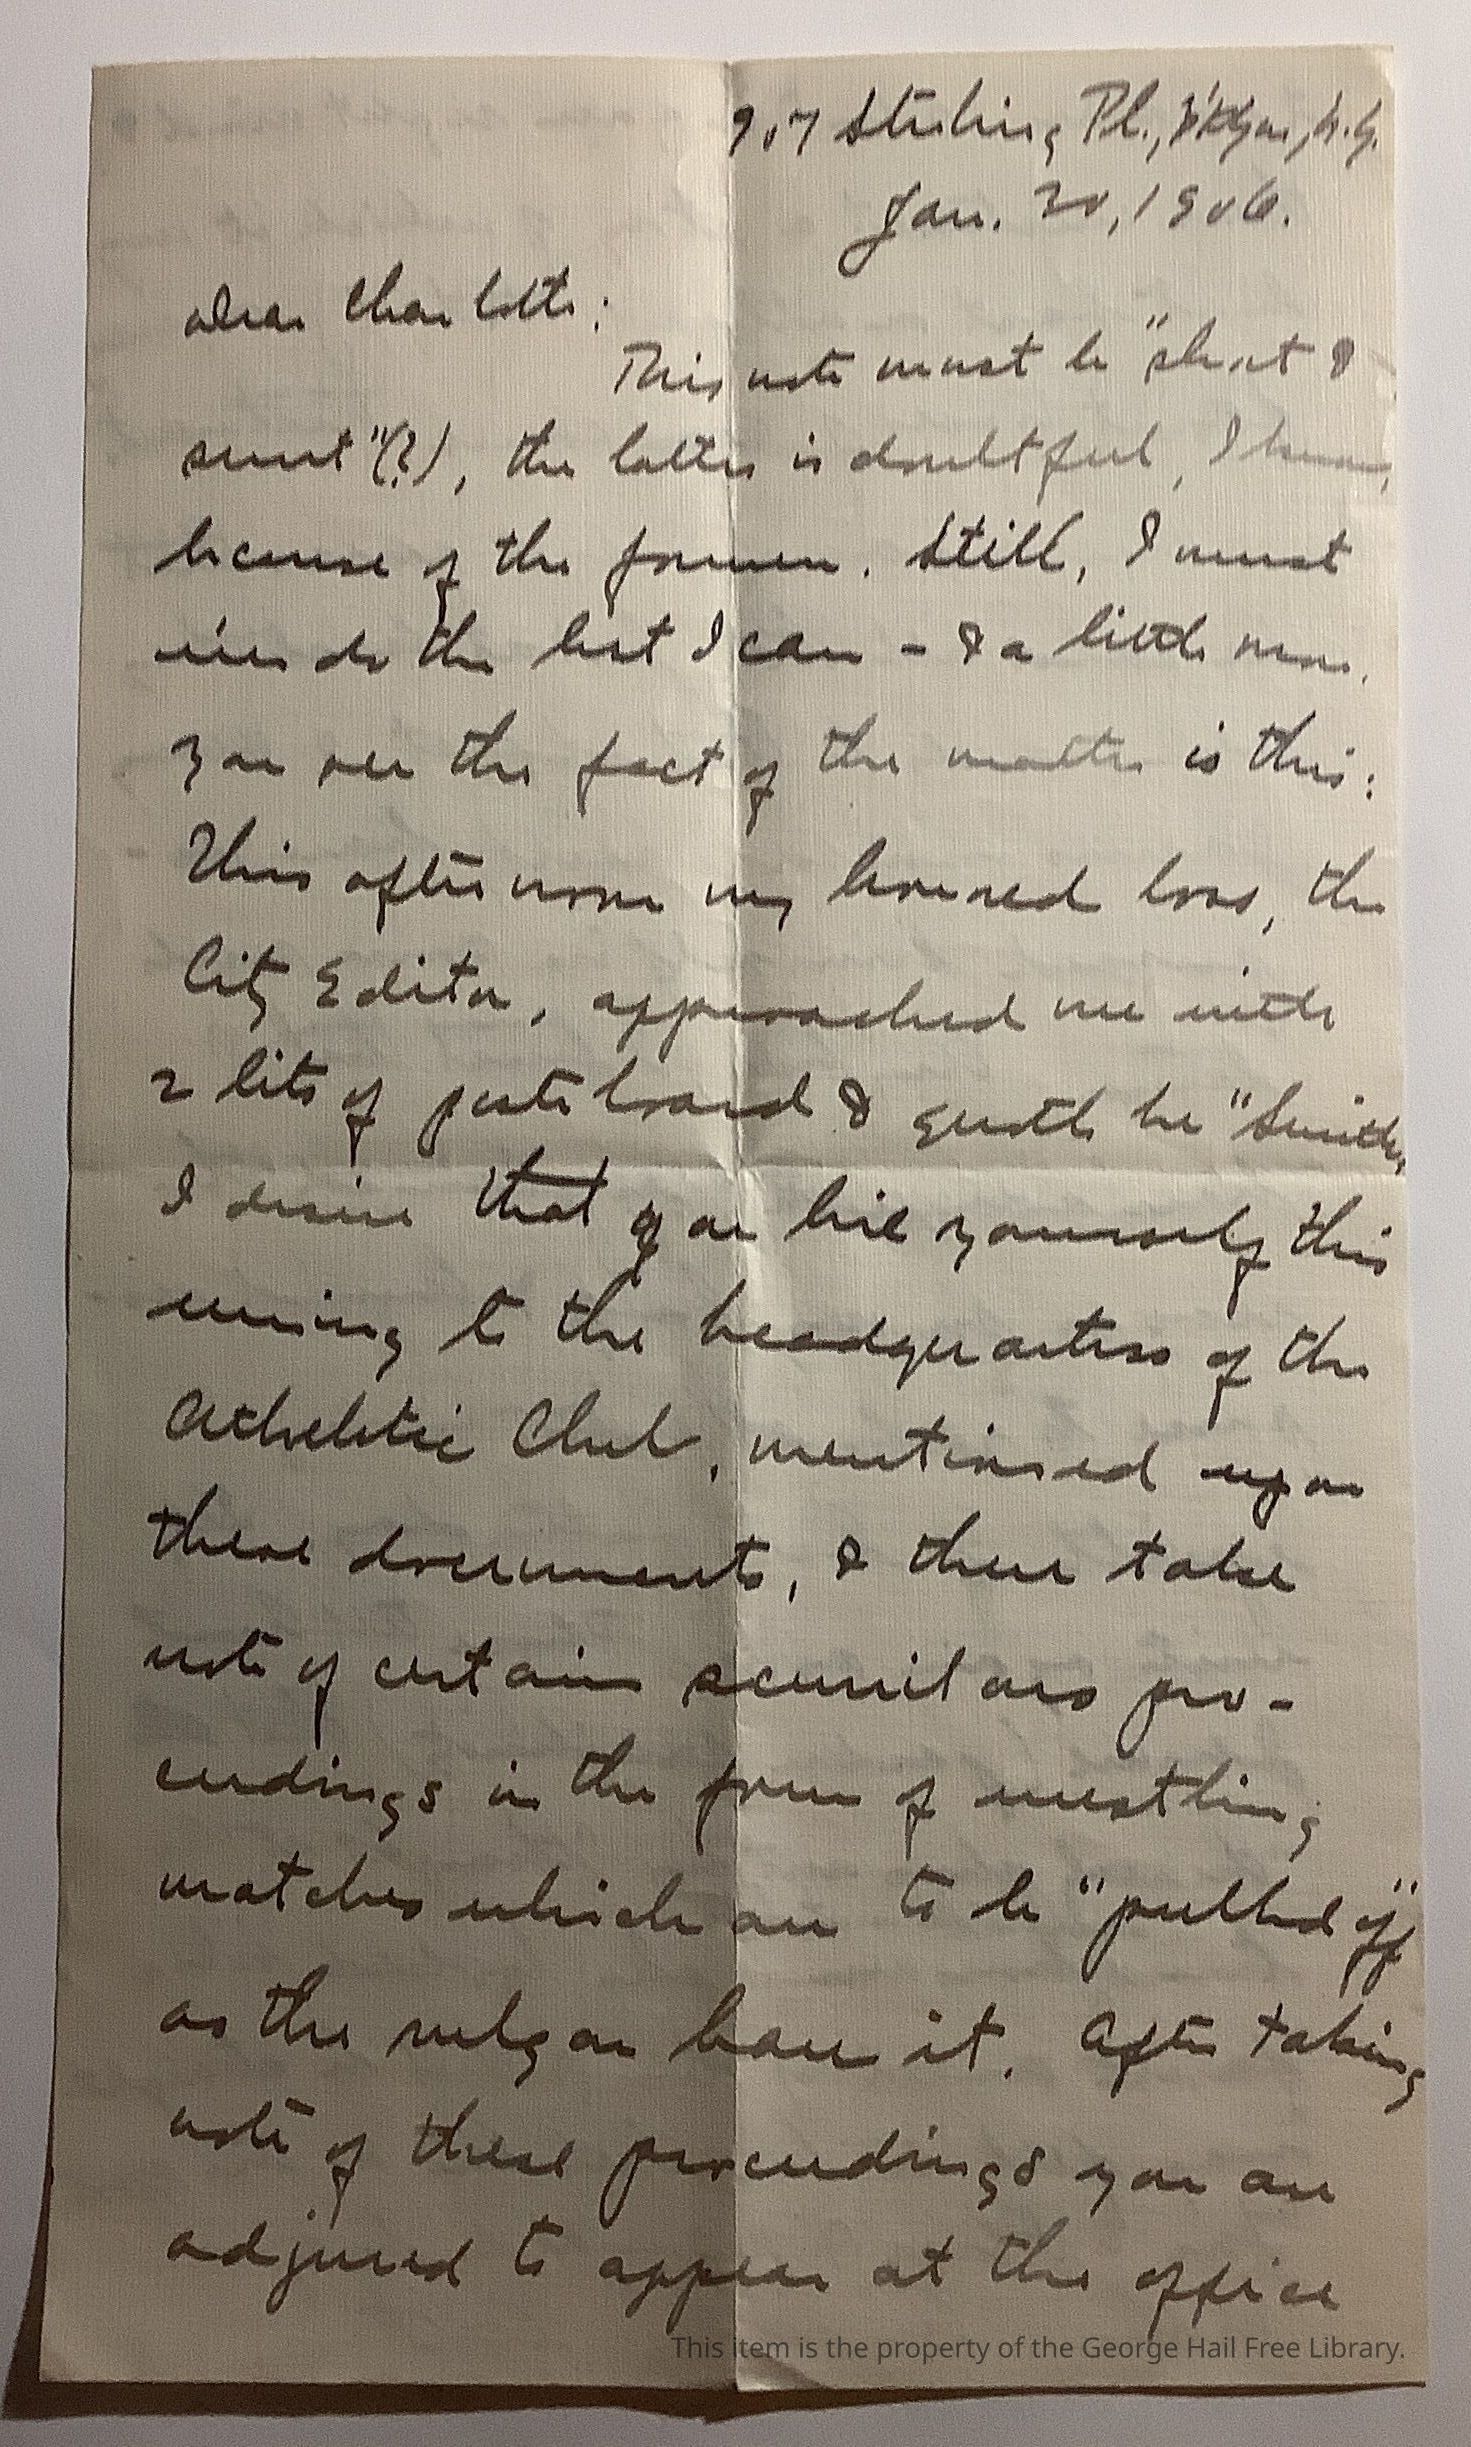 907 Sterling Pl., B'klyn, N.Y.
Jan. 20, 1906.
Dear Charlotte:
This note must be "short &
sweet"(?), the latter is doubtful, I know,
because of the former. Still, I must
e'en do the best I can - & a little more.
You see the fact of the matter is this:
This afternoon my honored boss, the
City Editor, approached me with
2 bits of pasteboard & quoth he "Smith,
I desire that you hie yourself this
evening to the headquarters of the
Atheletic Club, mentioned upon
these documents, & there take
note of certain scurrilous pro-
ceedings in the form of wrestling
matches which are to be "pulled off"
as the vulgar have it. After taking
note of these proceedings you are
adjured to appear at the office
This item is the property of the George Hail Free Library.